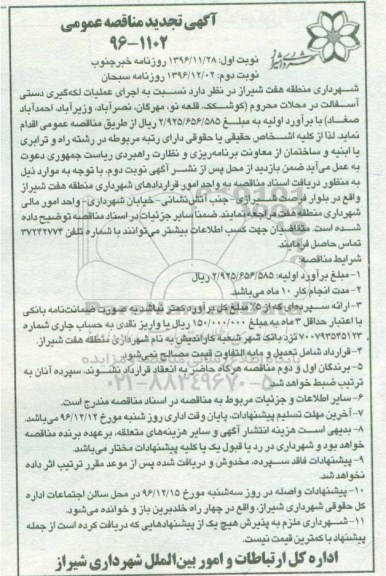 آگهی تجدید مناقصه عمومی
۹۶-۱۱۰۲
نوبت اول: ۱۳۹۶/۱۱/۲۸ روزنامه خبرجنوب
نوبت دوم: ۱۳۹۶/۱۲/۰۲ روزنامه سبحان
شهرداری شیراز
شهرداری منطقه هفت شیراز در نظر دارد نسبت به اجرای عملیات لکه‌گیری دستی
آسفالت در محلات محروم (کوشکک، قلعه نو، مهرگان، نصرآباد، وزیرآباد، احمدآباد
صفاد) با برآورد اولیه به مبلغ ۲/۹۲۵/۶۵۶/۵۸۵ ریال از طریق مناقصه عمومی اقدام
نماید. لذا از کلیه اشخاص حقیقی یا حقوقی دارای رتبه مربوطه در رشته راه و ترابری
یا ابنیه و ساختمان از معاونت برنامه‌ریزی و نظارت راهبردی ریاست جمهوری دعوت
به عمل می‌آید ضمن بازدید از محل پس از نشر آگهی نوبت دوم، با توجه به موارد ذیل
به منظور دریافت اسناد مناقصه به واحد امور قراردادهای شهرداری منطقه هفت شیراز
واقع در بلوار فرصت شیرازی- جنب آتش‌نشانی- خیابان شهرداری- واحد امور مالی
شهرداری منطقه هفت مراجعه نمایند. ضمناً سایر جزئیات در اسناد مناقصه توضیح داده
شده است. متقاضیان جهت کسب اطلاعات بیشتر می‌توانند با شماره تلفن ۳۷۲۴۲۷۷۴
تماس حاصل فرمایند.
شرایط مناقصه:
۱- مبلغ برآورد اولیه: ۲/۹۲۵/۶۵۶/۵۸۵ ریال
۲- مدت انجام کار ۱۰ ماه می‌باشد.
۳- ارائه سپرده‌ای که از ۵٪ مبلغ کل برآورد کمتر نباشد به صورت ضمانت‌نامه بانکی
با اعتبار حداقل ۳ ماه به مبلغ ۱۵۰/۰۰۰/۰۰۰ ریال یا واریز نقدی به حساب جاری شماره
۷۰۰۷۹۳۵۲۵۱۲۳ نزد بانک شهر شعبه کاراندیش به نام شهرداری منطقه هفت شیراز.
۴- قرارداد شامل تعدیل و مابه التفاوت قیمت مصالح نمی‌شود.
۵- برندگان اول و دوم مناقصه هرگاه حاضر به انعقاد قرارداد نشوند، سپرده آنان به
ترتیب ضبط خواهد شد.
۶- سایر اطلاعات و جزئیات مربوط به مناقصه در اسناد مناقصه مندرج است.
۷- آخرین مهلت تسلیم پیشنهادات، پایان وقت اداری روز شنبه مورخ ۹۶/۱۲/۱۲ می‌باشد.
۸- بدیهی است هزینه انتشار آگهی و سایر هزینه‌های متعلقه، برعهده برنده مناقصه
خواهد بود و شهرداری در رد یا قبول یک یا کلیه پیشنهادات مختار می‌باشد.
۹- پیشنهادات فاقد سپرده، مخدوش و دریافت شده پس از موعد مقرر ترتیب اثر داده
نخواهد شد.
۱۰- پیشنهادات واصله در روز سه‌شنبه مورخ ۹۶/۱۲/۱۵ در محل سالن اجتماعات اداره
کل حقوقی شهرداری شیراز، واقع در چهار راه خلدبرین باز و خوانده می‌شود.
۱۱- شهرداری ملزم به پذیرش هیچ یک از پیشنهادهایی که دریافت کرده است از جمله
پیشنهاد با کمترین قیمت نیست.
اداره کل ارتباطات و امور بین‌الملل شهرداری شیراز
۰۲۱-۸۸۳۴۹۶۷۰-۵